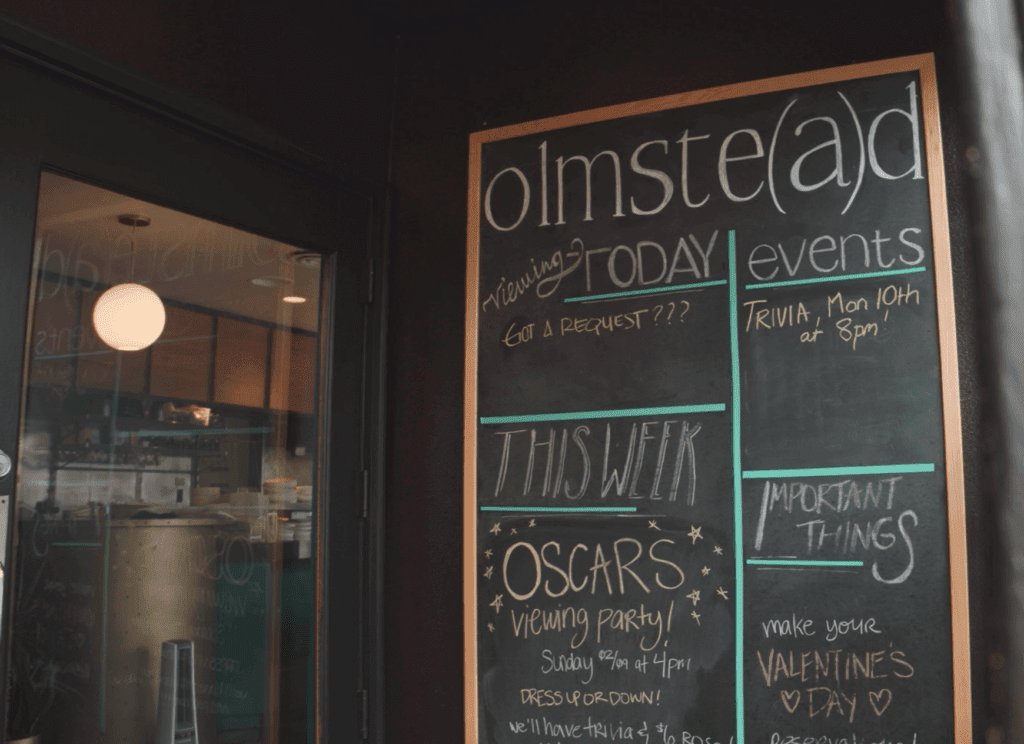 olmste(a)d
viewing TODAY
GOT A REQUEST ???
THIS WEEK
OSCARS
viewing party!
Sunday 02/09 at 4pm
DRESS UP OR DOWN!
we'll have trivia & $6
events
TRIVIA, Mon 10th
at 8pm!
IMPORTANT
THINGS
make your
VALENTINE'S
♡ DAY ♡